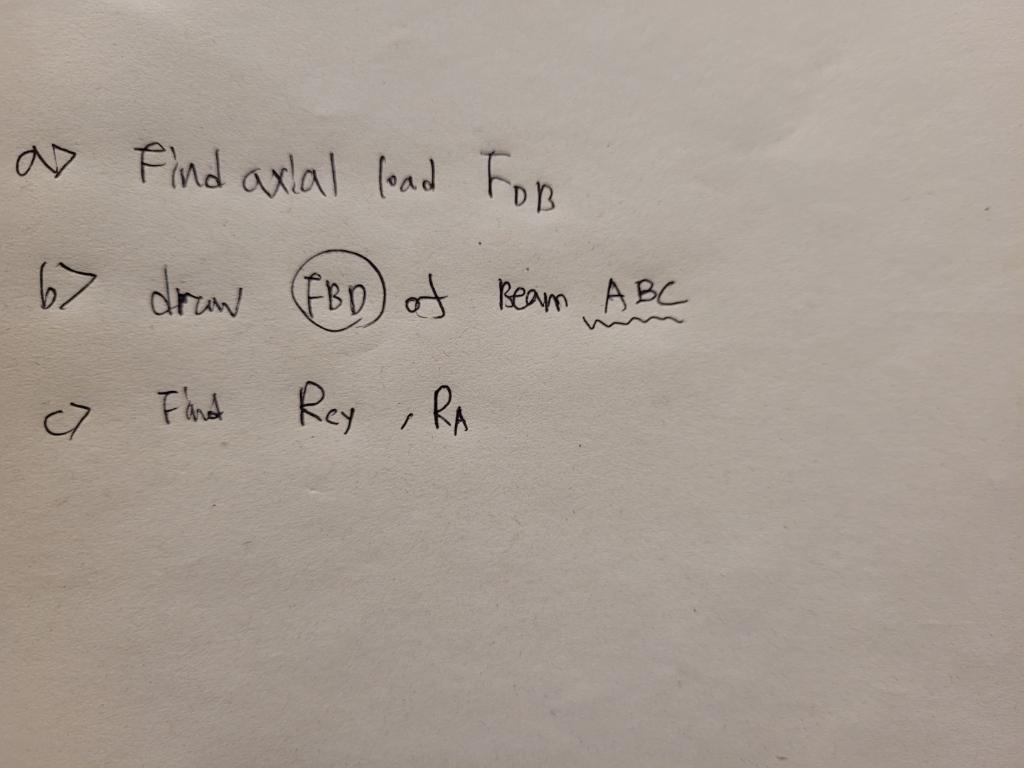 a> Find axial load FDB
b> draw FBD of Beam ABC
c> Find Rcy, RA